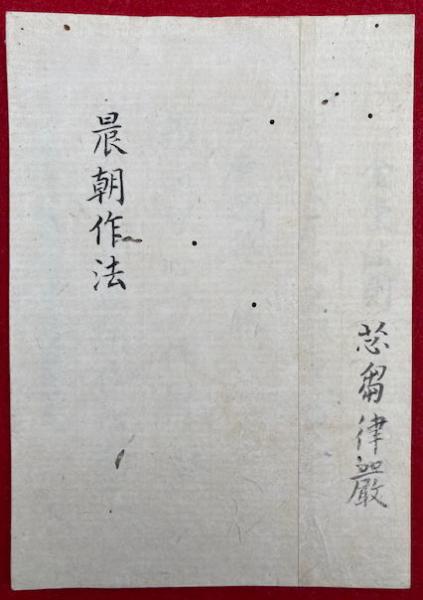 苾芻律嚴
晨朝作法